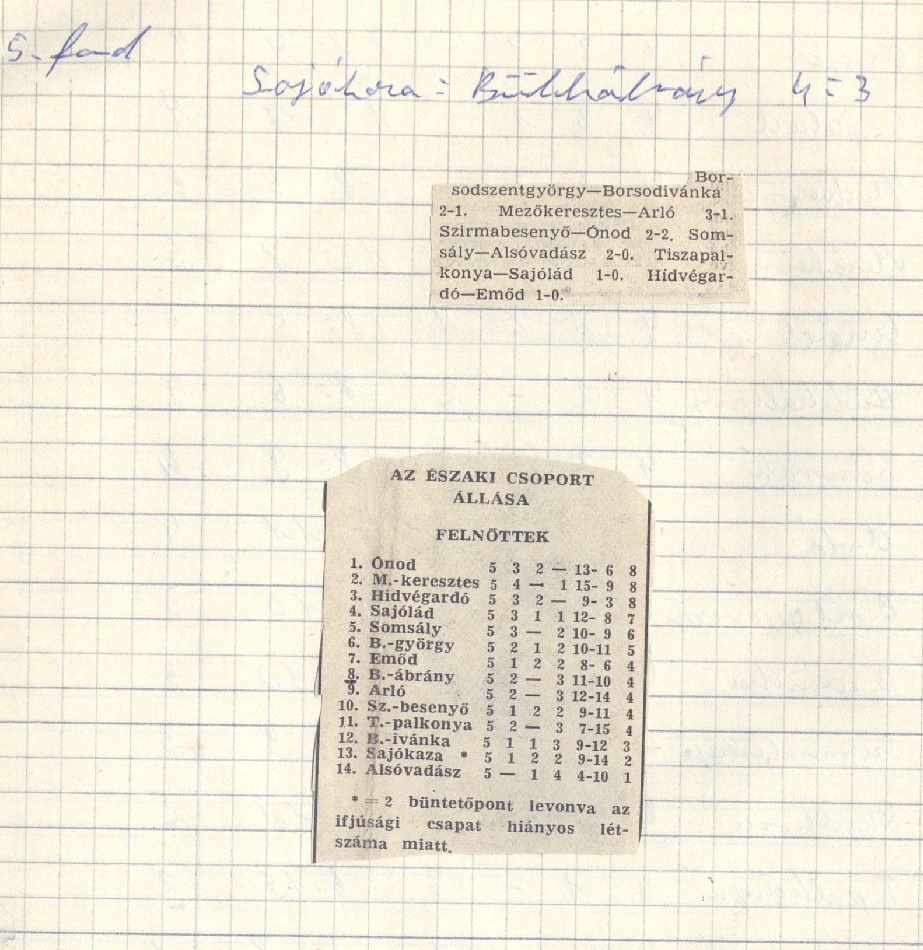 5. ford
Sajókaza = Bükkábrány 4 = 3
Bor-
sodszentgyörgy—Borsodivánka
2-1. Mezőkeresztes—Arló 3-1.
Szirmabesenyő—Ónod 2-2. Som-
sály—Alsóvadász 2-0. Tiszapal-
konya—Sajólád 1-0. Hídvégar-
dó—Emőd 1-0.
AZ ÉSZAKI CSOPORT
ÁLLÁSA
FELNŐTTEK
1. Ónod 5 3 2 — 13- 6 8
2. M.-keresztes 5 4 — 1 15- 9 8
3. Hídvégardó 5 3 2 — 9- 3 8
4. Sajólád 5 3 1 1 12- 8 7
5. Somsály 5 3 — 2 10- 9 6
6. B.-györgy 5 2 1 2 10-11 5
7. Emőd 5 1 2 2 8- 6 4
8. B.-ábrány 5 2 — 3 11-10 4
9. Arló 5 2 — 3 12-14 4
10. Sz.-besenyő 5 1 2 2 9-11 4
11. T.-palkonya 5 2 — 3 7-15 4
12. B.-ivánka 5 1 1 3 9-12 3
13. Sajókaza * 5 1 2 2 9-14 2
14. Alsóvadász 5 — 1 4 4-10 1
* = 2 büntetőpont levonva az
ifjúsági csapat hiányos lét-
száma miatt.